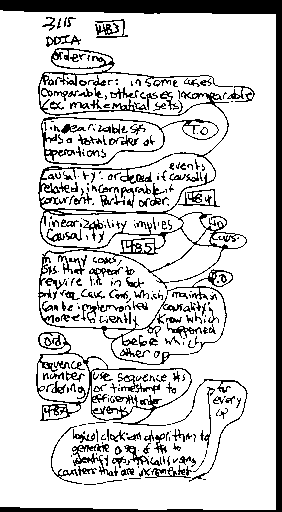 3115 483
DDIA
ordering
Partial order: in some cases
comparable, other cases incomparable
(ex. mathematical sets)
linearizable sys T.O
has a total order of
operations
Causality: ordered if causally events
related, incomparable if
concurrent. Partial order. 484
linearizability implies lin
causality 485 caus.
in many cases,
sys that appear to P.O
require lin in fact
only req. caus. cons, which maintain
can be implemented causality:
more efficiently know which
op happened
ord. before which
other op
sequence
number use sequence #s
ordering or timestamp to for
efficiently order every
events op
logical clock: an algorithm to
generate a seq of #s to
identify ops, typically using
counters that are incremented